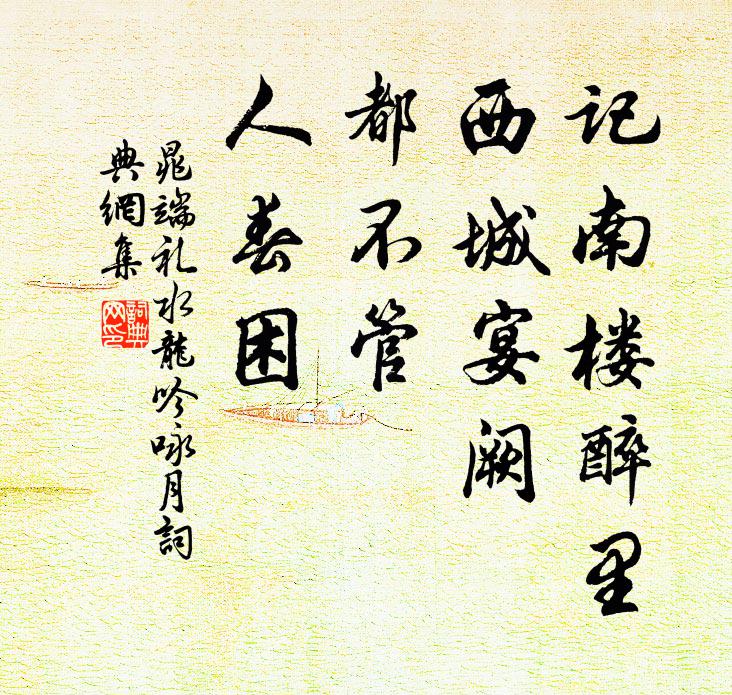 记南楼醉里
西城宴阙
都不管
人春困
晁端礼水龍吟咏月詞
典網集
詞典网印